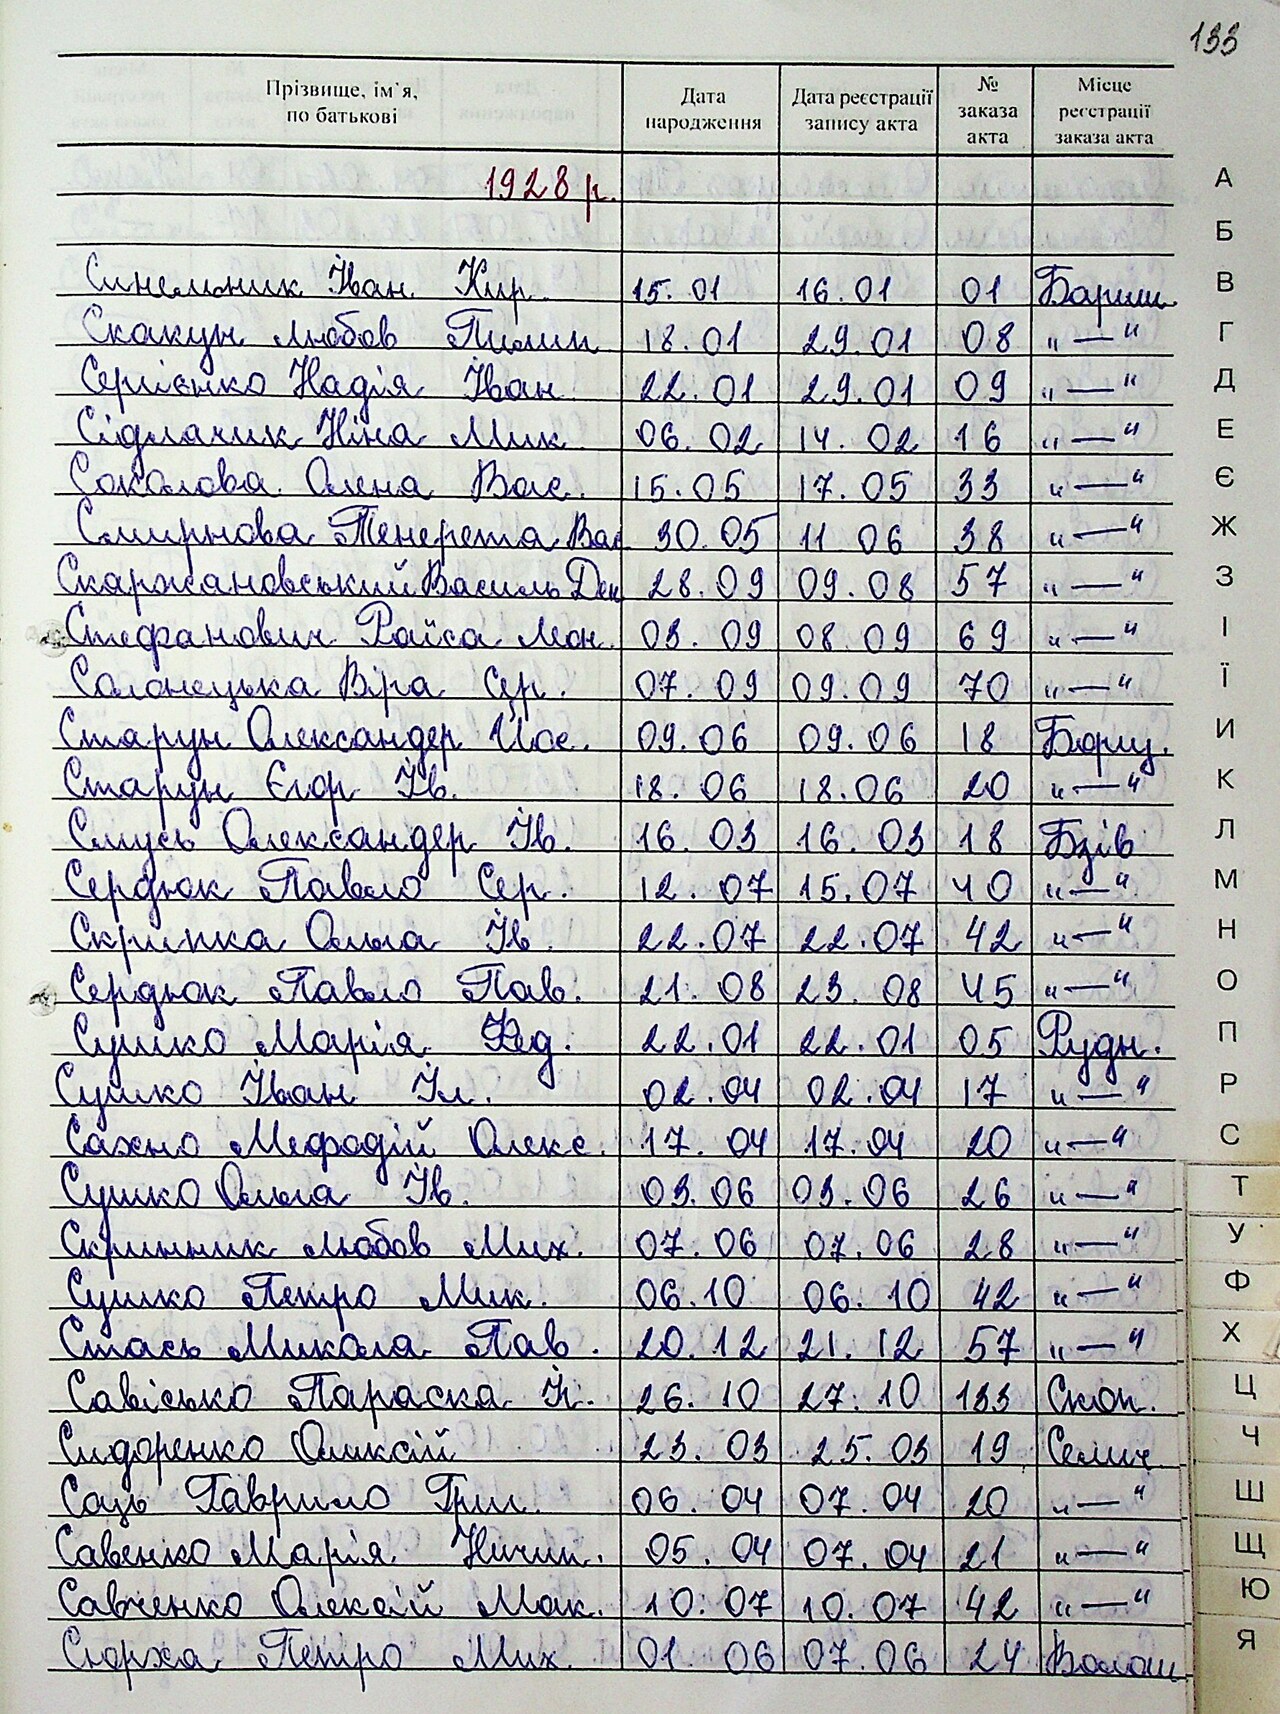 133
Прізвище, ім'я, по батькові Дата народження Дата реєстрації запису акта № заказа акта Місце реєстрації заказа акта
1928 р.
А
Б
Синельник Іван Кир. 15.01 16.01 01 Бориш В
Скакун Любов Пилип 18.01 29.01 08 „—“ Г
Сергієнко Надія Іван 22.01 29.01 09 „—“ Д
Сідлачик Ніна Мик 06.02 14.02 16 „—“ Е
Соколова Олена Вас. 15.05 17.05 33 „—“ Є
Смирнова Тенерета Вас 30.05 11 06 38 „—“ Ж
Скаржановський Василь Дем 28.09 09.08 57 „—“ З
Стефанович Раїса Леон. 03.09 08.09 69 „—“ І
Солонецька Віра Сер. 07.09 09.09 70 „—“ Ї
Старун Олександер Йос. 09.06 09.06 18 Борщ. И
Старун Єгор Ів. 18.06 18.06 20 „—“ К
Смусь Олександер Ів. 16.03 16.03 18 Бзів Л
Сердюк Павло Сер. 12.07 15.07 40 „—“ М
Скрипка Ольга Ів. 22.07 22.07 42 „—“ Н
Сердюк Павло Пав. 21.08 23.08 45 „—“ О
Сушко Марія Фед. 22.01 22.01 05 Рудн. П
Сушко Іван Іл. 02.04 02.04 17 „—“ Р
Сахно Мефодій Олекс. 17.04 17.04 20 „—“ С
Сушко Ольга Ів. 03.06 03.06 26 „—“ Т
Скринник Любов Мих. 07.06 07.06 28 „—“ У
Сушко Петро Мик. 06.10 06.10 42 „—“ Ф
Стась Микола Пав. 20.12 21.12 57 „—“ Х
Савісько Параска 26.10 27.10 133 Скоп. Ц
Сидоренко Олексій 23.03 25.03 19 Селич Ч
Соць Гаврило Григ. 06.04 07.04 20 „—“ Ш
Савенко Марія Ничип. 05.04 07.04 21 „—“ Щ
Савченко Олексій Мак. 10.07 10.07 42 „—“ Ю
Сюрха Петро Мих. 01 06 07.06 24 Волош Я